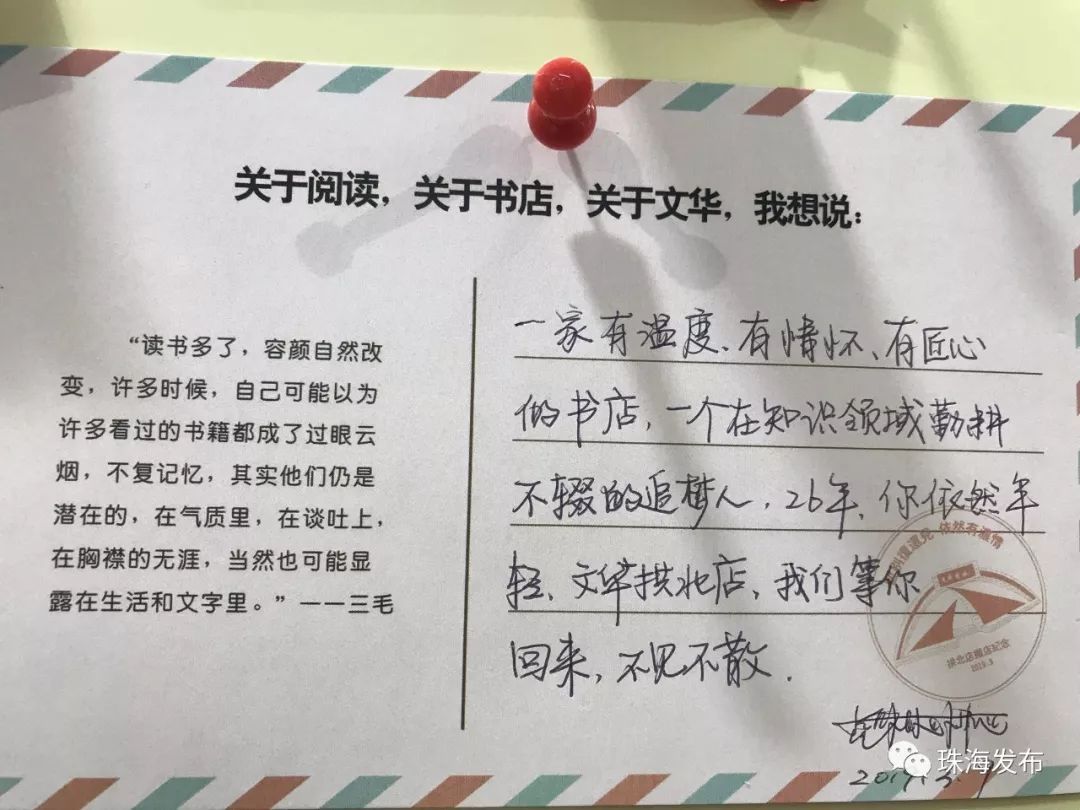 关于阅读，关于书店，关于文华，我想说：
“读书多了，容颜自然改
变，许多时候，自己可能以为
许多看过的书籍都成了过眼云
烟，不复记忆，其实他们仍是
潜在的，在气质里，在谈吐上，
在胸襟的无涯，当然也可能显
露在生活和文字里。”——三毛
一家有温度、有情怀、有匠心
的书店，一个在知识领域勤耕
不辍的追梦人，26年，你依然年
轻，文华拱北店，我们等你
回来，不见不散.
依然有激情
拱北店撤店纪念
2019.3
珠海发布